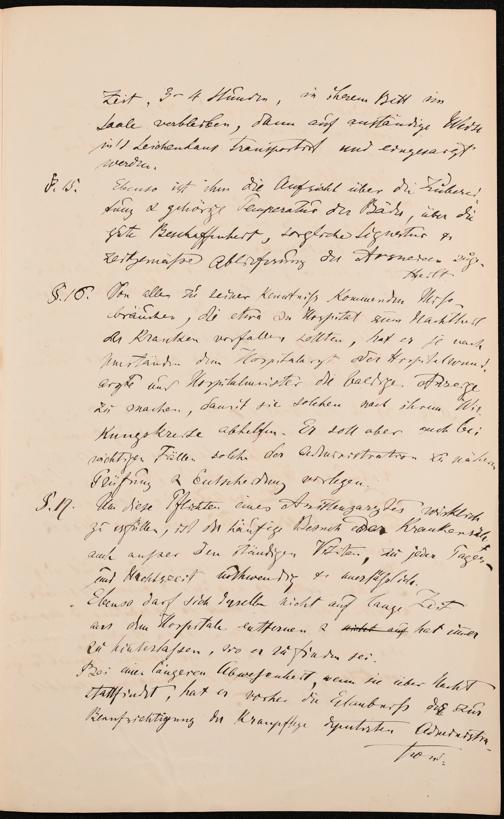 Zeit, 3-4 Stunden, in ihrem Bett im
Saale verbleiben, dann auf anständige Weise
in's Leichenhaus transportirt und eingesargt
werden.
§. 15. Ebenso ist ihm die Aufsicht über die Zuberei
tung & gehörige Temperatur des Bades, über die
gute Beschaffenheit, sorgliche Signatur &
zeitgemässe Ablieferung der Arzneien zuge-
theilt
§. 16. Von allen zu seiner Kenntniss kommenden Miss-
bräuchen, die etwa im Hospital zum Nachtheil
der Kranken vorfallen sollten, hat er je nach
Umständen dem Hospitalarzt oder Hospitalwund-
arzt und Hospitalmeister die baldige Anzeige
zu machen, damit sie solchen nach ihrem Wir-
kungskreise abhelfen. Er soll aber auch bei
wichtigen Fällen solche der Administration zu näherer
Prüfung & Entscheidung vorlegen.
§. 17. Um diese Pflichten eines Assistenzarztes wirklich
zu erfüllen, ist der häufige Besuch der Krankensäle,
auch ausser den ständigen Visiten, zu jeder Tages-
und Nachtszeit nothwendig &
Ebenso darf sich derselbe nicht auf lange Zeit
aus dem Hospitale entfernen & nicht auf hat immer
zu hinterlassen, wo er zu finden sei.
Bei einer längeren Abwesenheit, wenn sie über Nacht
stattfindet, hat er vorher die Erlaubniss der zur
Beaufsichtigung der Krankpflege deputirten Administra-